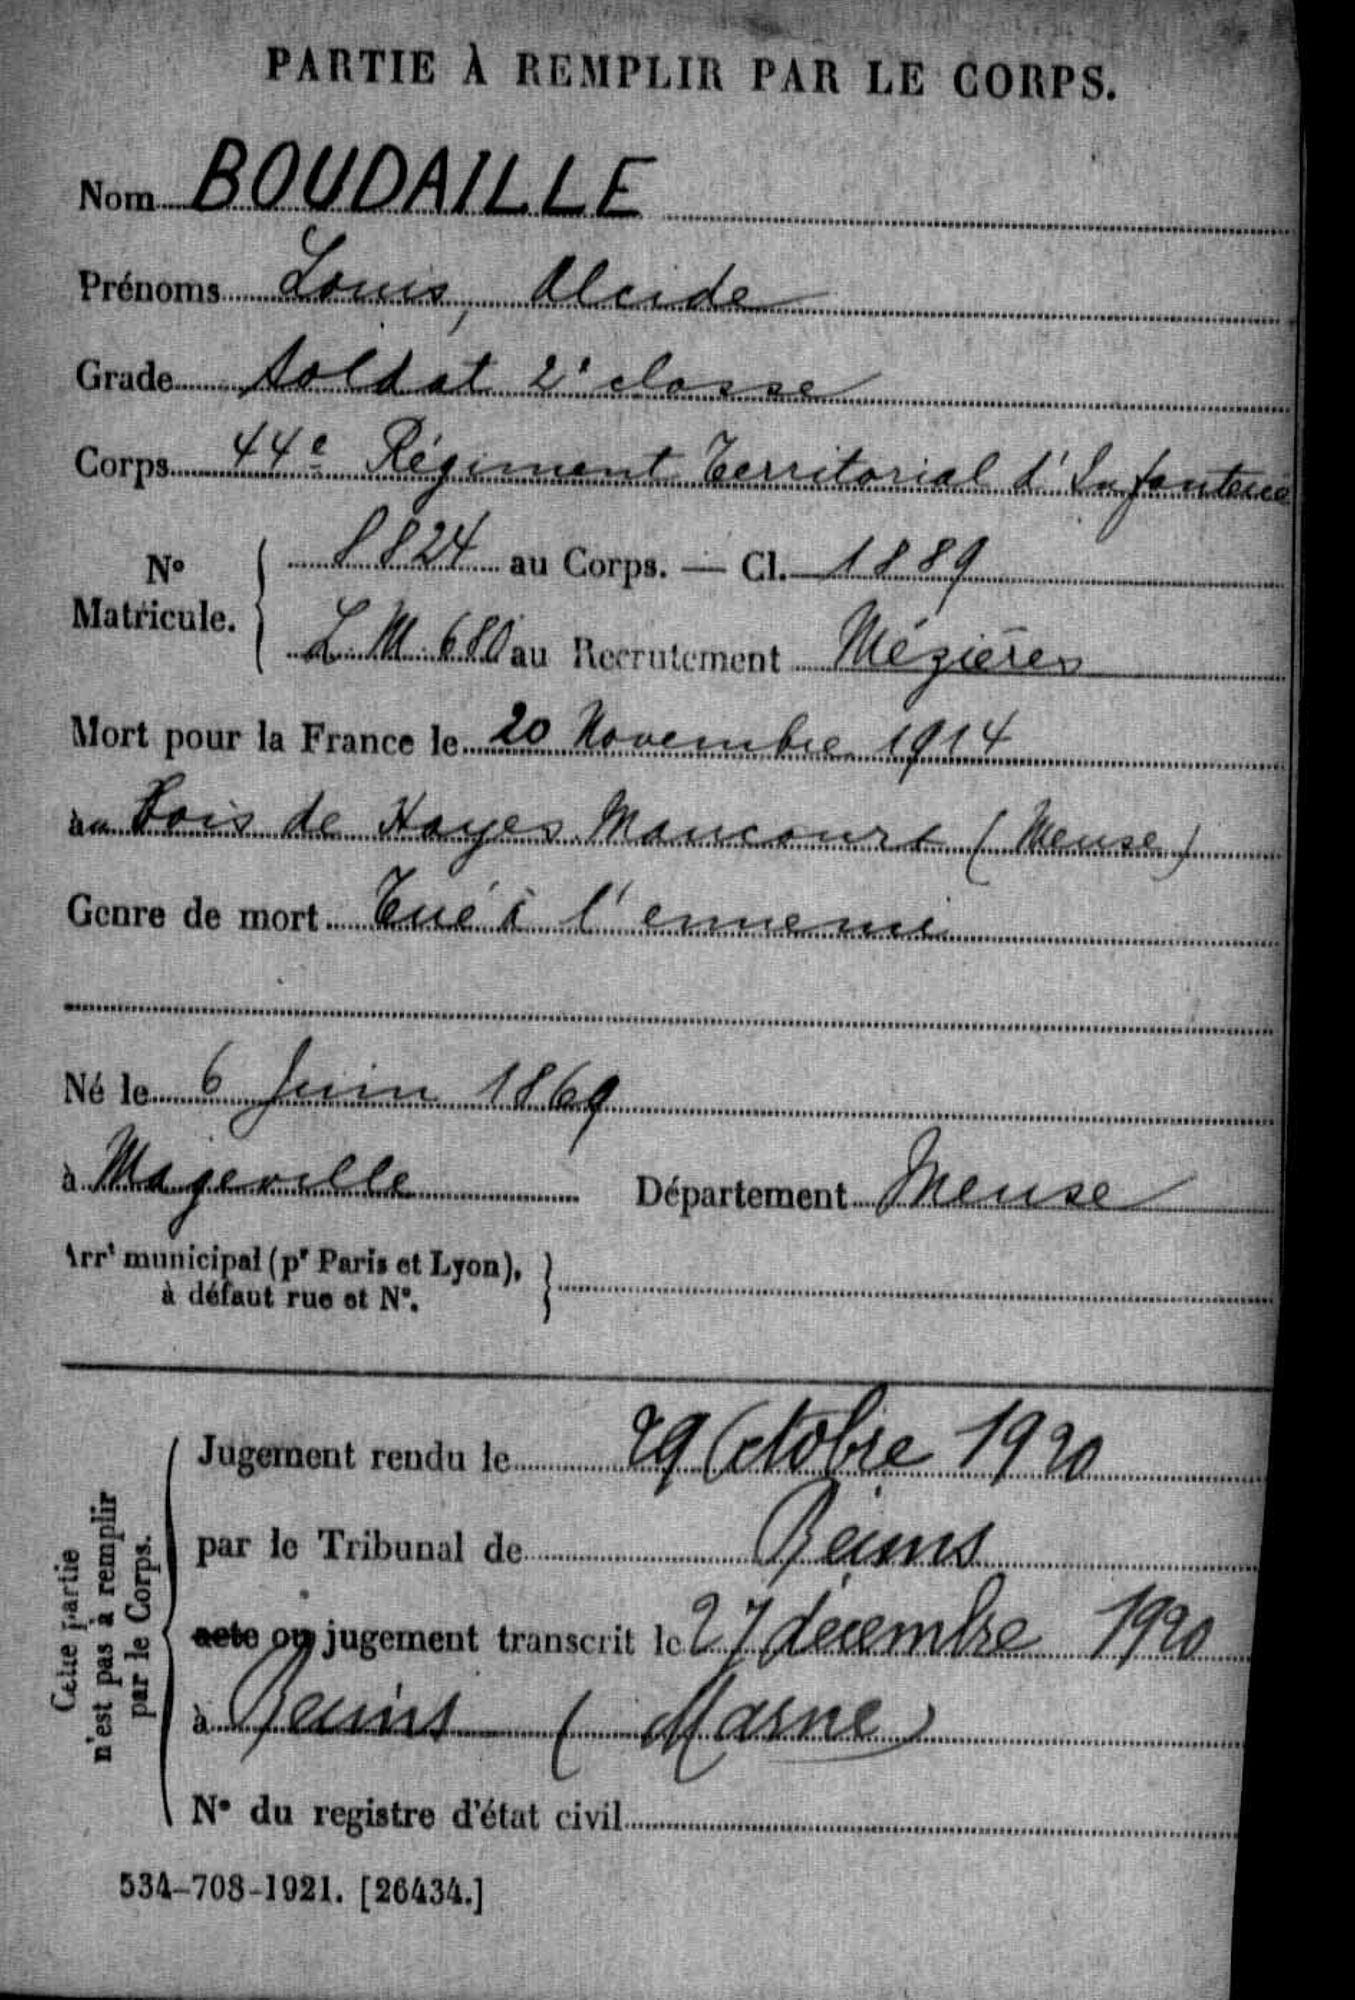 PARTIE À REMPLIR PAR LE CORPS.
Nom BOUDAILLE
Prénoms Louis, Alcide
Grade Soldat 2e classe
Corps 44e Régiment Territorial d'Infanterie
No Matricule. 8824 au Corps. — Cl. 1889
L.M. 680 au Recrutement Mézières
Mort pour la France le 20 Novembre 1914
au Bois de Hayes Maucourt (Meuse)
Genre de mort Tué à l'ennemi
Né le 6 Juin 1869
à Mogeville Département Meuse
Arrt municipal (pr Paris et Lyon),
à défaut rue et No.
Cette partie
n'est pas à remplir
par le Corps.
Jugement rendu le 29 Octobre 1920
par le Tribunal de Reims
acte ou jugement transcrit le 27 décembre 1920
à Reims (Marne)
No du registre d'état civil
534-708-1921. [26434.]